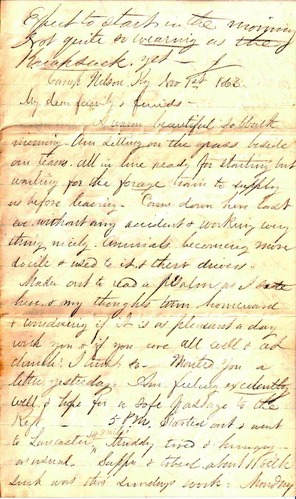 Expect to start in the morning
Not quite so wearing as the
Knapsack. yet —
Camp Nelson, Ky Nov 1st 1863.
My dear family & friends —
A warm beautiful Sabbath
morning. Am sitting on the grass beside
our teams. all in line ready for starting but
waiting for the forage train to supply
us before leaving. Came down here last
eve without any accident & working every
thing nicely. Animals becoming more
docile & used to it & their drivers.
Made out to read a psalm as I sate
here & my thoughts turn homeward
& wondering if it is as pleasant a day
with you & if you are all well & at
church. I trust so. Mailed you a
letter yesterday. Am feeling excellently
well & hope for a safe passage to the
5 P.M. Started out & went
to Lancaster, muddy, tired & hungry
as usual. Supper & to bed about
was this Sundays work. Monday